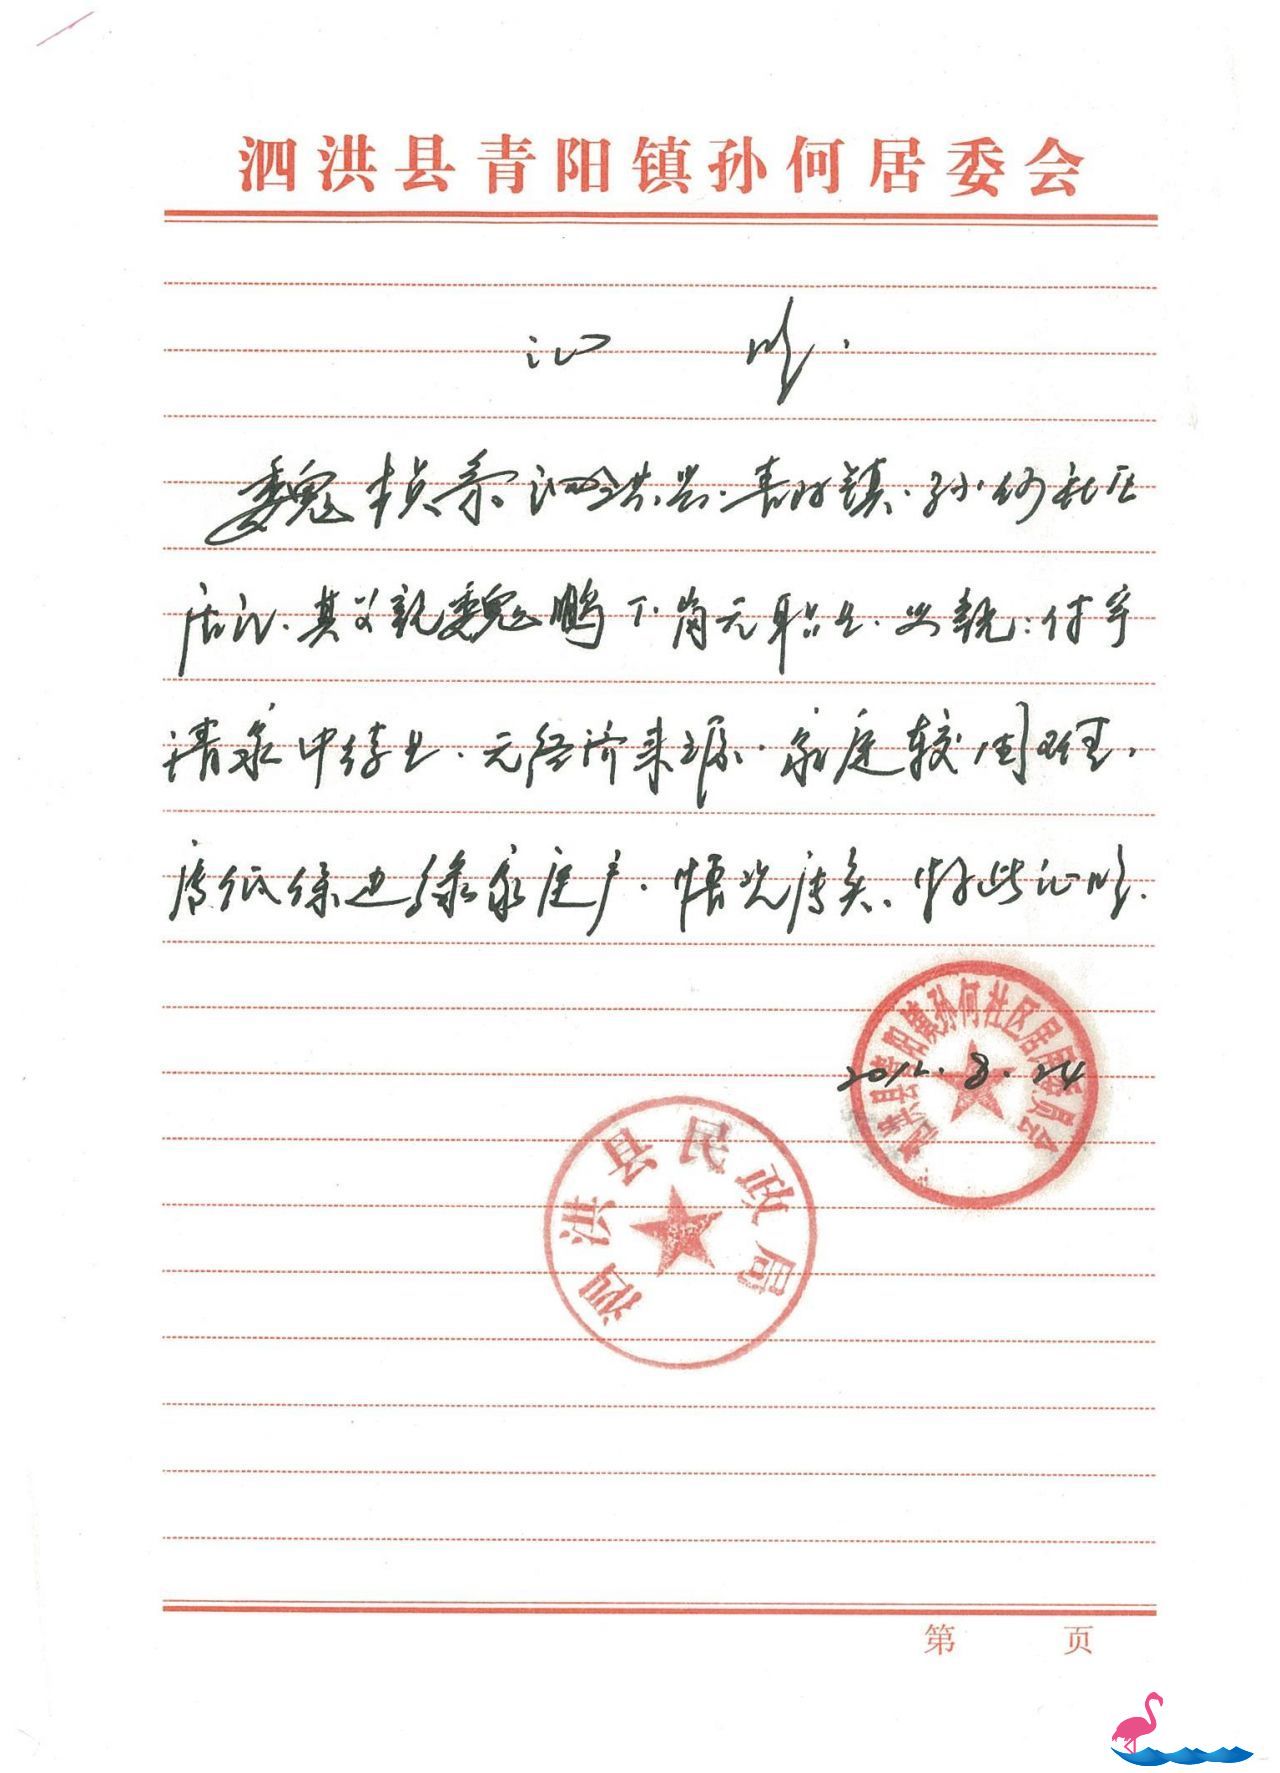 泗洪县青阳镇孙何居委会
证 明.
魏桢系泗洪县.青阳镇.孙何社区
居民.其父亲魏鹏下岗无职业.母亲:付宇
清家中待业.无经济来源.家庭较困难.
属低保边缘家庭户.情况属实.特此证明.
泗洪县青阳镇孙何社区居民委员会
2012.8.24
泗洪县民政局
第 页